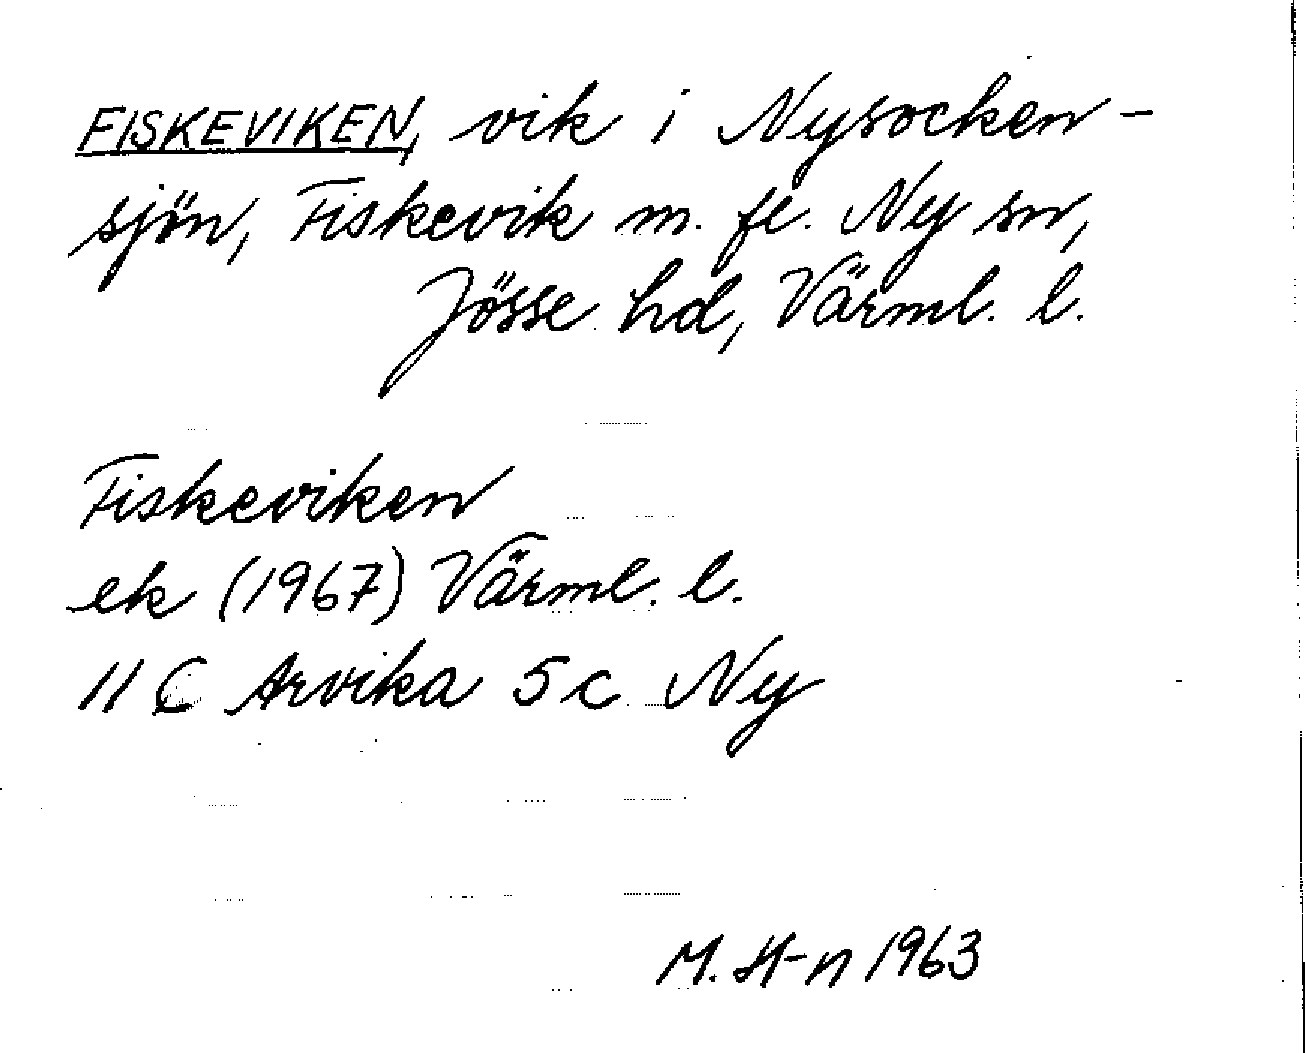 FISKEVIKEN, vik i Nysocken-
sjön, Fiskevik m. fl. Ny sn,
Jösse hd, Värml. l.
Fiskeviken
ek (1967) Värml. l.
11 C Arvika 5 c Ny
M. H-n 1963